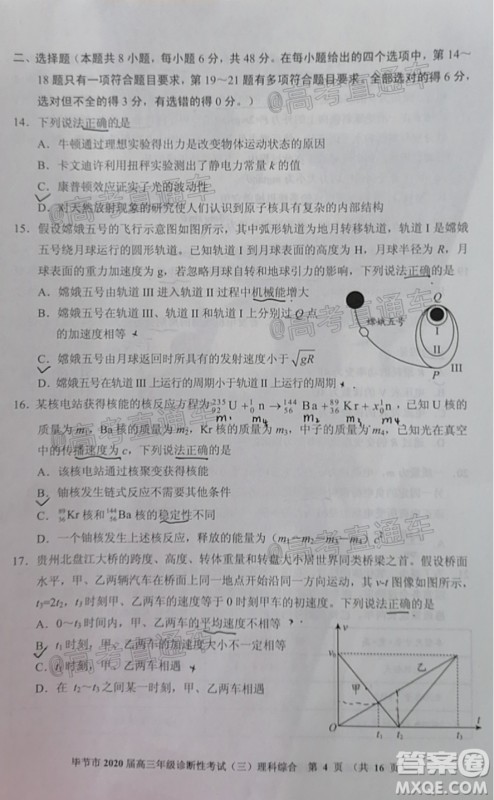 二、选择题（本题共 8 小题，每小题 6 分，共 48 分。在每小题给出的四个选项中，第 14～
18 题只有一项符合题目要求，第 19～21 题有多项符合题目要求。全部选对的得 6 分，
选对但不全的得 3 分，有选错的得 0 分）
14．下列说法正确的是
A．牛顿通过理想实验得出力是改变物体运动状态的原因
B．卡文迪许利用扭秤实验测出了静电力常量 k 的数值
C．康普顿效应证实了光的波动性
D．对天然放射现象的研究使人们认识到原子核具有复杂的内部结构
15．假设嫦娥五号的飞行示意图如图所示，其中弧形轨道为地月转移轨道，轨道 I 是嫦娥
五号绕月球运行的圆形轨道。已知轨道 I 到月球表面的高度为 H，月球半径为 R，月球
表面的重力加速度为 g，若忽略月球自转及地球引力的影响，下列说法正确的是
A．嫦娥五号由轨道 III 进入轨道 II 过程中机械能增大
B．嫦娥五号在轨道 III 和轨道 I 上分别过 Q 点
的加速度相等
C．嫦娥五号由月球返回所具有的发射速度小于√gR
D．嫦娥五号在轨道 III 上运行的周期小于轨道 II 上运行的周期
嫦娥五号
Q
I
II
P
III
16．某核电站获得核能的核反应方程为²³⁵₉₂U＋¹₀n→¹⁴⁴₅₆Ba＋⁸⁹₃₆Kr＋x¹₀n，已知 U 核的
m₁ m₄ m₂ m₃ m₄
质量为 m₁，Ba 核的质量为 m₂，Kr 核的质量为 m₃，中子的质量为 m₄，已知光在真空
中的传播速度为 c，下列说法正确的是
A．该核电站通过核聚变获得核能
B．铀核发生链式反应方程式中的 x=3
C．⁸⁹₃₆Kr 核和¹⁴⁴₅₆Ba 核的稳定性不同
D．一个铀核发生上述核反应，释放的能量为（m₁－m₂－m₃－m₄）c
17．贵州北盘江大桥的跨度、高度、转体重量、车道数均居世界同类桥梁之首。假设桥面
水平，甲、乙两辆汽车在桥面上从同一地点沿同一方向运动的 v-t 图象如图所示，
t₃=2t₂，时刻甲、乙两车的速度大小等于 0 时刻甲车的初速度。下列说法正确的是
A．0～t₃时刻，甲、乙两车的平均速度不相等
B．t₁时刻，甲、乙两车的加速度大小不一定相等
C．t₃时刻，甲、乙两车相遇
D．在 t₂～t₃之间某一时刻，甲、乙两车相遇
v
v₀
甲
乙
0
t₁
t₂
t₃
t
毕节市 2020 届高三年级诊断性考试（三）理科综合 第 4 页 （共 16 页
@高考直通车
@高考直通车
@高考直通车
@高考直通车